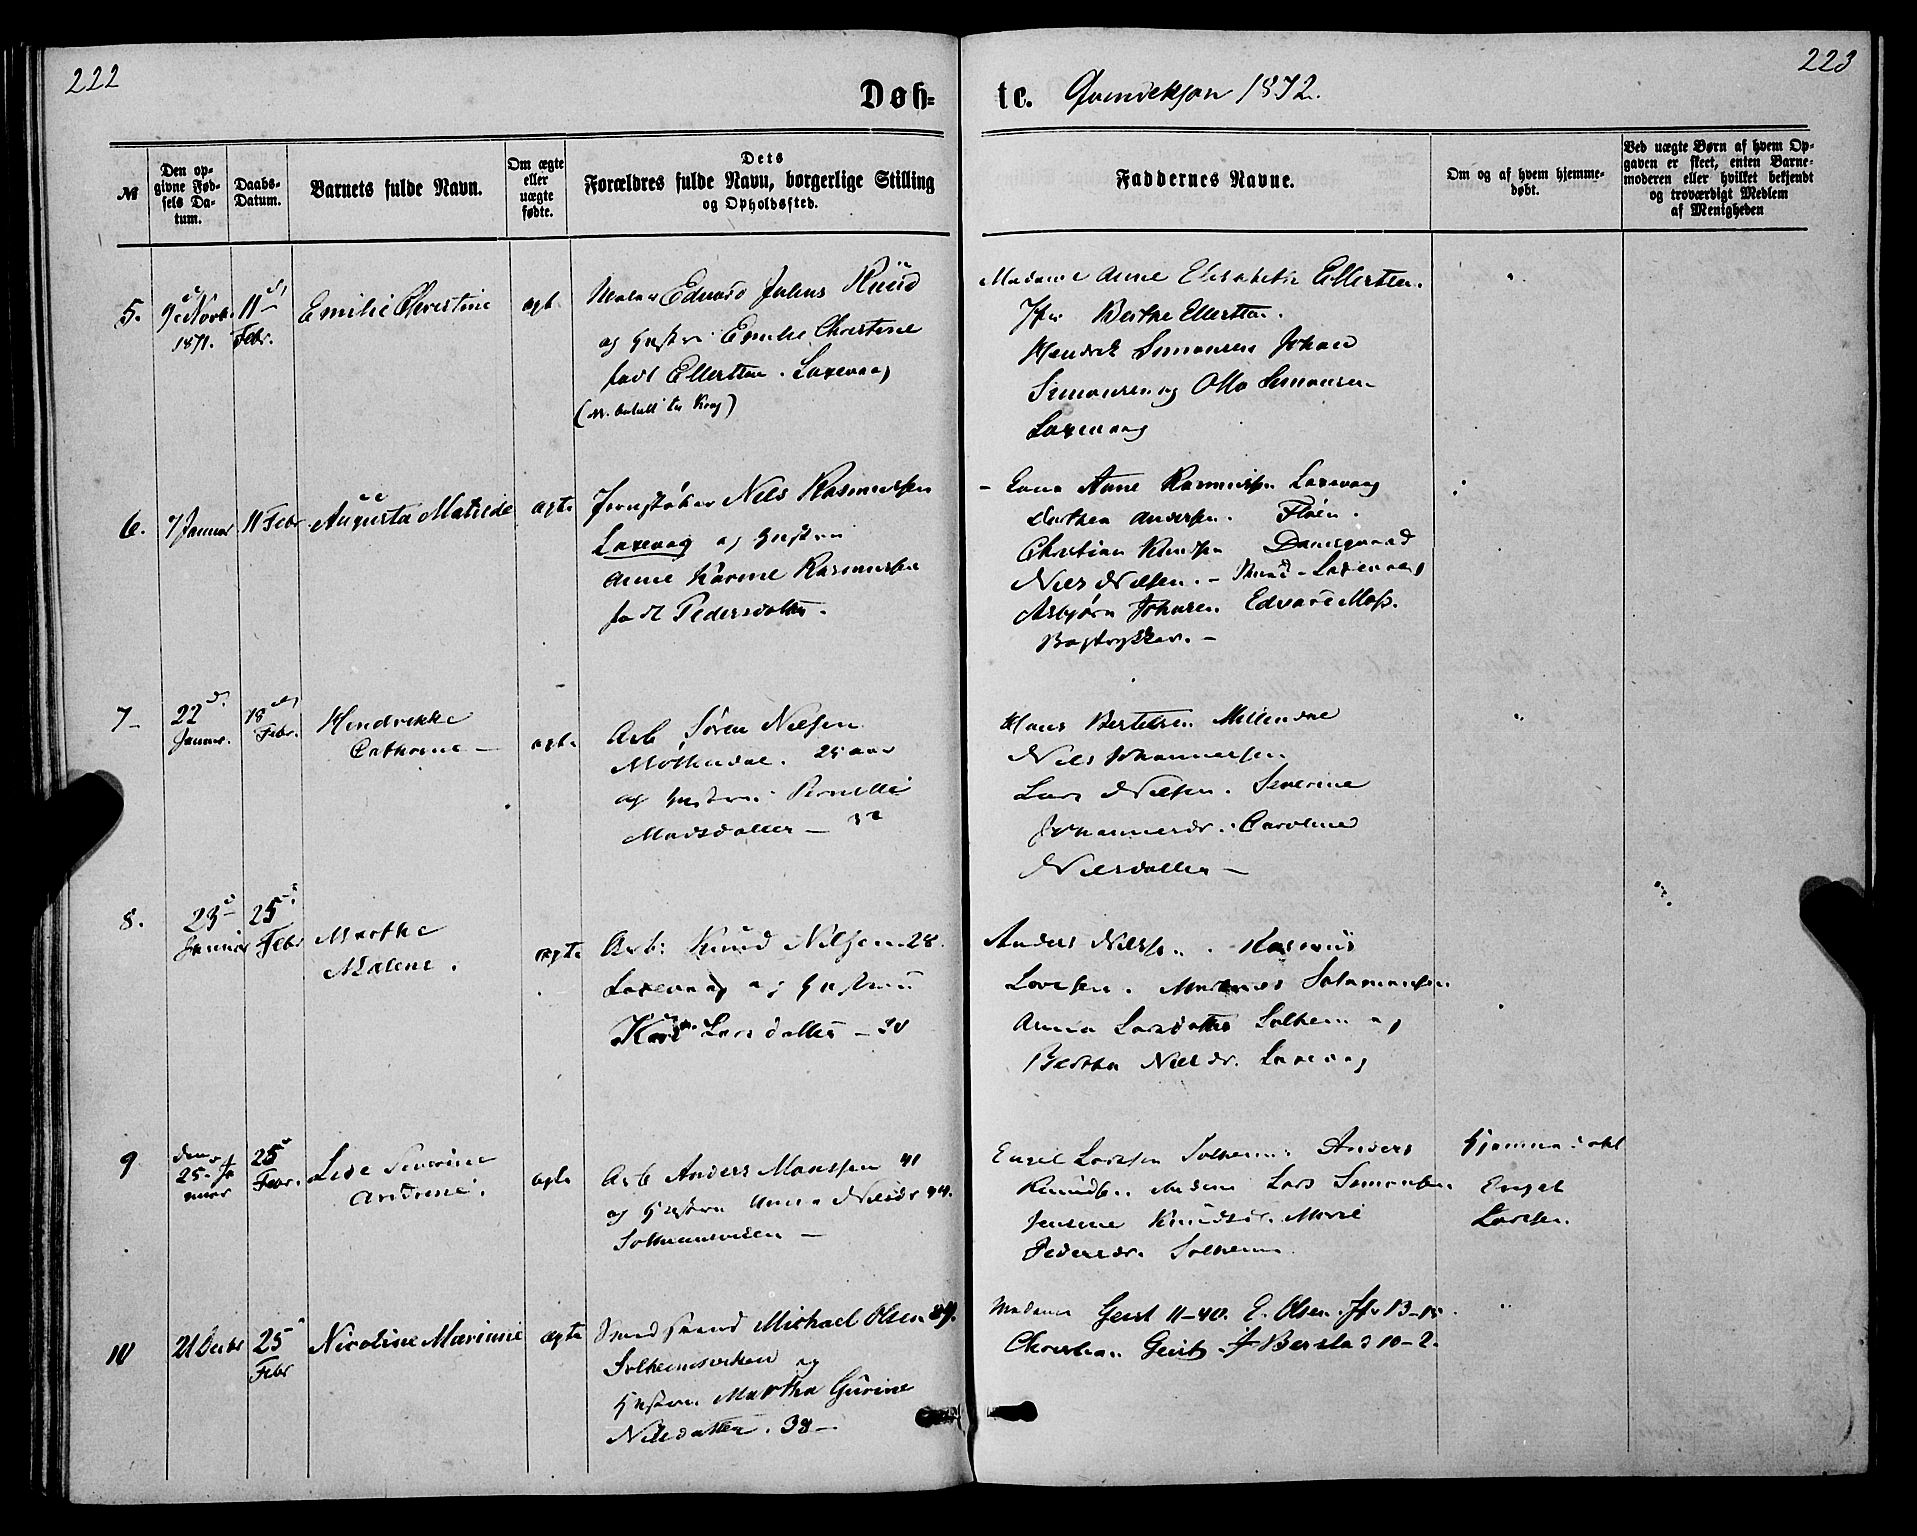 222
223
Døb=
te. Qvindekjøn 1872.
№
Den opgivne Fødsels Datum.
Daabs-Datum.
Barnets fulde Navn.
Om ægte eller uægte fødte.
Dets
Forældres fulde Navn, borgerlige Stilling
og Opholdssted.
Faddernes Navne.
Om og af hvem hjemmedøbt.
Ved uægte Børn af hvem Opgaven er skeet, enten Barnemoderen eller hvilket bekjendt og troværdigt Medlem af Menigheden
5.
1871.
11
Febr.
Emilie Christine
ægt.
Edvard Julius Ruud
og Hustru Emilie Christine
født Ellertsen. Laxevaag
Madame Anne Elisabeth Ellertsen.
Jfr Berthe Ellertsen.
Hendrik Simonsen Johan
Simonsen og Otto Simonsen
Laxevaag
6.
7 Januar
11 Febr
Augusta Matilde
ægte
Jernstøber Nils Rasmussen
Laxevaag og Hustru
Anne Karine Rasmussen
født Pedersdatter.
Anne Rasmussen Laxevaag
Dorthea Andersen. Fløen.
Christian Knudsen Damsgaard
Nils Nilsen. Laxevaag
Asbjørn Johnsen. Edvard Moss.
Bogtrykker.
7
22
Januar.
18
Febr.
Hendrikke
Cathrine
ægte
Arb Søren Nilsen
Møllendal. 25 aar
og Hustru Pernille
Madsdatter — 32
Hans Bertelsen Møllendal
Nils Johannessen
Lars Nilsen. Severine
Johannesdr. Caroline
Nilsdatter
8.
23
Januar
25
Febr
Marthe
Malene.
ægte
Arb: Knud Nilsen 28.
Laxevaag og Hustru
Kari Larsdatter — 30
Anders Nilsen. Rasmus
Larsen. Salamonsen
Anna Larsdatter Solheim og
Berthe Nilsdr. Laxevaag
9
den
25. Januar
25
Febr.
Lise Severine
Andrine.
ægte
Arb Anders Monssen 41
og Hustru Anna Nilsdr 44.
Solheimsviken
Engel Larsen Solheim. Anders
Knudsen Lars Simonsen
Jensine Knudsdr. Marie
Pedersdr. Solheim
Hjemmedøbt
Engel
Larsen.
10
21 Decbr
25
Febr
Nicoline Marinie
ægte
Michael Olsen
Solheimsviken og
Hustru Martha Gurine
Nilsdatter. 38
Madame Geist 11-40. E. Olsen. Jfr B-15.
Christian Geist. J Berstad 10-2.